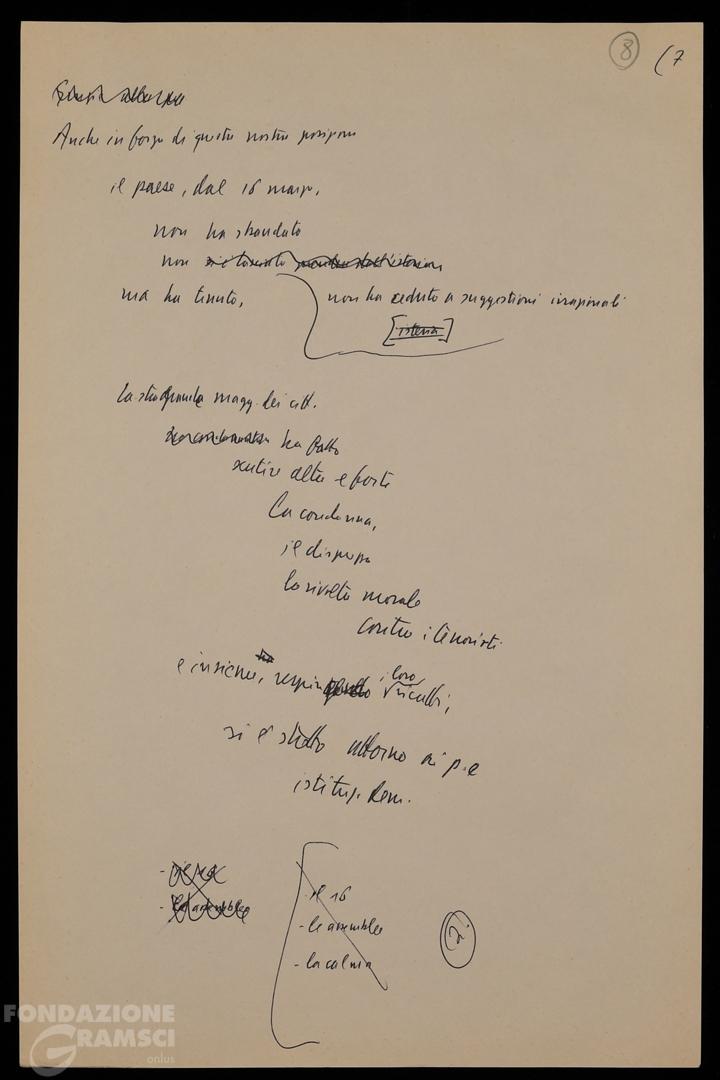 8 (7
Anche in forza di questa nostra posizione
il paese, dal 16 marzo,
non ha sbandato
non si è lasciato prendere dall'isteria
ma ha tenuto, non ha ceduto a suggestioni irrazionali
[isteria]
La stragrande magg. dei citt.
ha fatto
sentire alta e forte
la condanna,
il disprezzo
la rivolta morale
contro i terroristi
e insieme, respingendo i loro ricatti,
si è stretto attorno ai p. e
istituz. dem.
- il 16
- le assemblee
- il 16
- le assemblee
- la calma
2.
FONDAZIONE
GRAMSCI
onlus